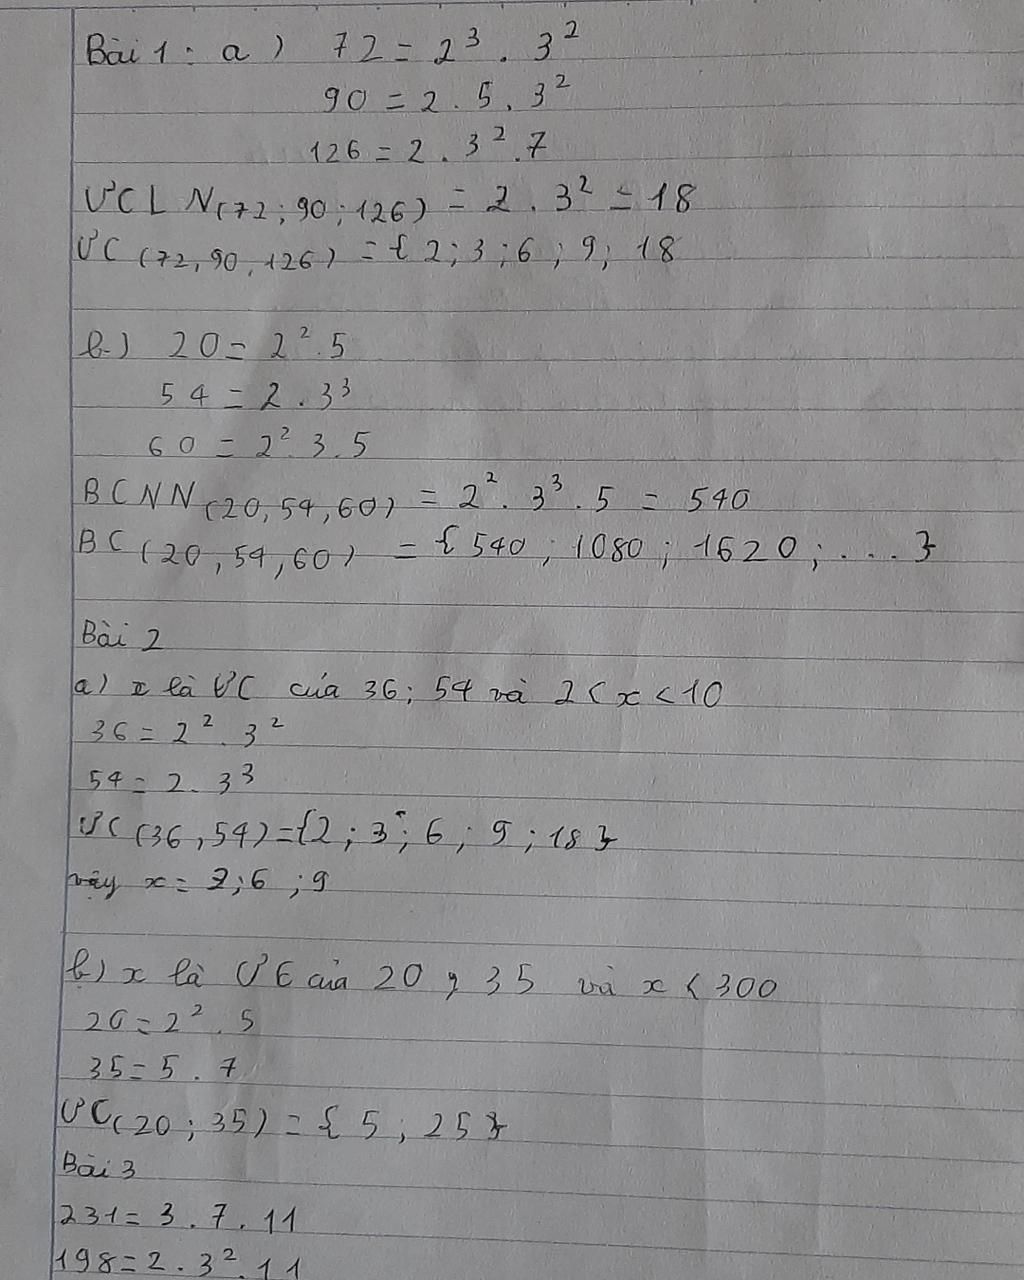 Bài 1: a) 72 = 2³ . 3²
90 = 2 . 5 . 3²
126 = 2 . 3² . 7
ƯCLN(72; 90; 126) = 2 . 3² = 18
ƯC(72, 90, 126) = { 2; 3; 6; 9; 18
b) 20 = 2² . 5
54 = 2 . 3³
60 = 2² . 3 . 5
BCNN(20, 54, 60) = 2² . 3³ . 5 = 540
BC(20, 54, 60) = { 540; 1080; 1620; ... }
Bài 2
a) x là ƯC của 36; 54 và 2 < x < 10
36 = 2² . 3²
54 = 2 . 3³
ƯC(36, 54) = {2; 3; 6; 9; 18}
vậy x = ; 6; 9
b) x là ƯC của 20; 35 và x < 300
20 = 2² . 5
35 = 5 . 7
ƯC(20; 35) = { 5; 25 }
Bài 3
231 = 3 . 7 . 11
198 = 2 . 3² . 11